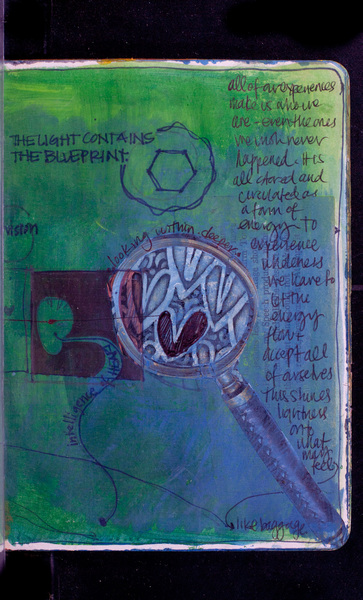 all of our experiences
make us who we
are - even the ones
we wish never
happened. It is
all stored and
circulated as
a form of
energy. To
experience
wholeness
we have to
let the
energy
flow &
accept all
of ourselves
This shines
lightness
on to
what
may
feel
like baggage
THE LIGHT CONTAINS
THE BLUEPRINT.
vision
looking within deeper
intelligence